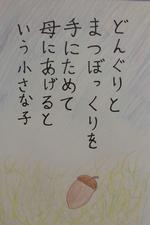 どんぐりと
まつぼっくりを
手にためて
母にあげると
いう小さな子